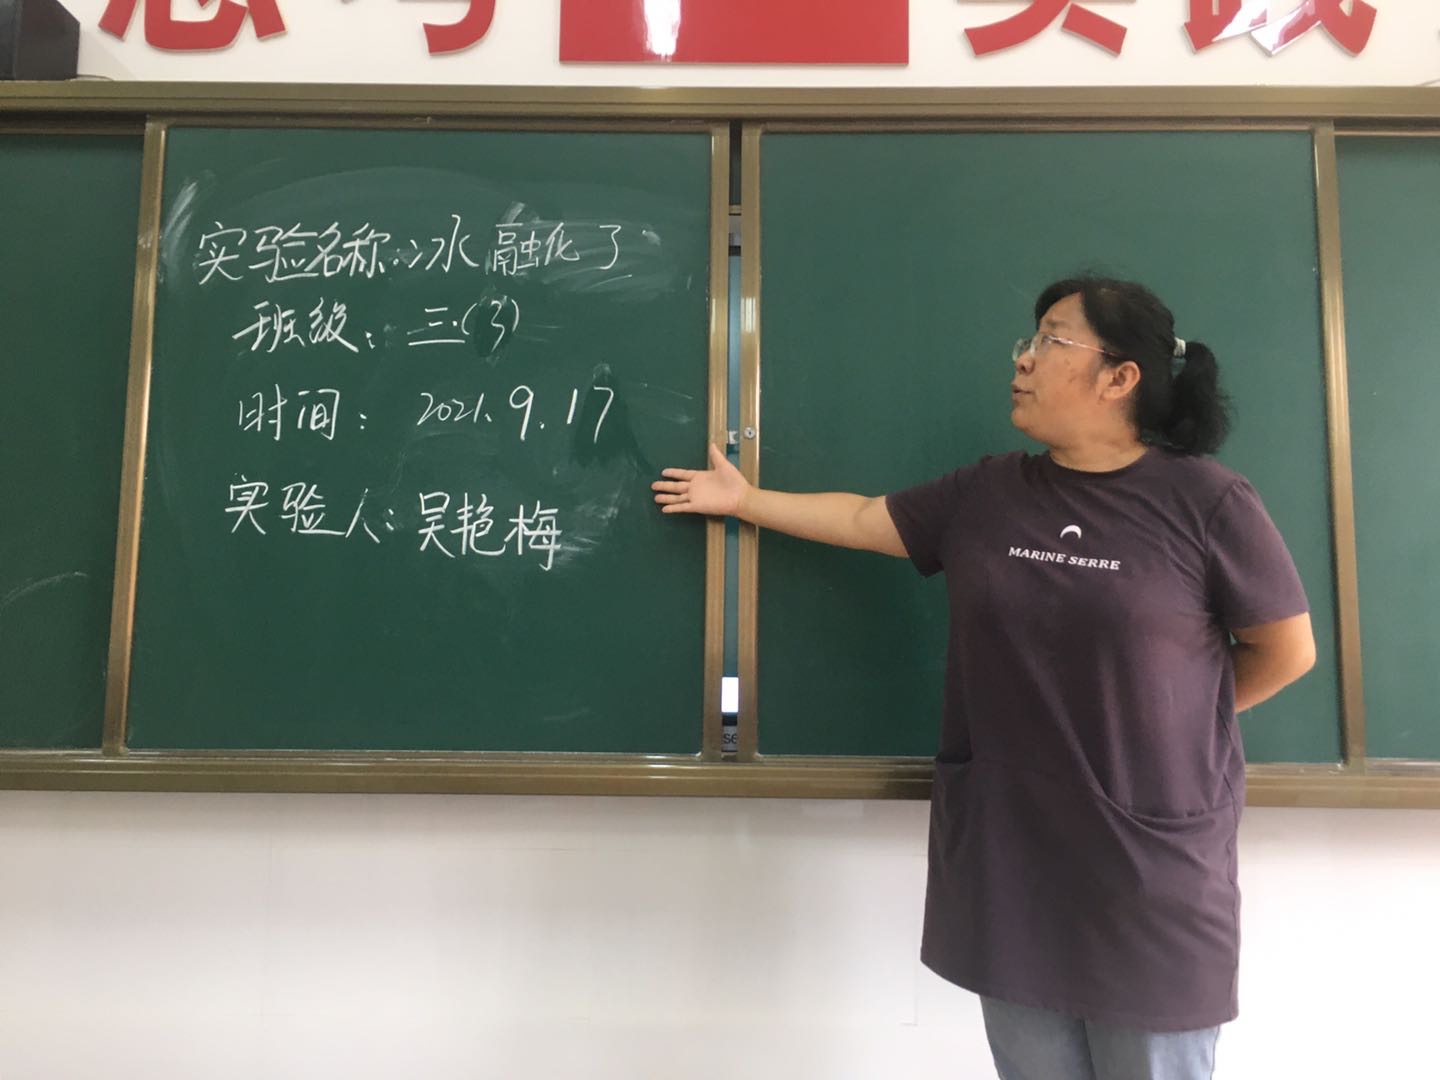 思考 实践
实验名称:冰融化了
班级:三.(3)
时间: 2021.9.17
实验人:吴艳梅
MARINE SERRE
se